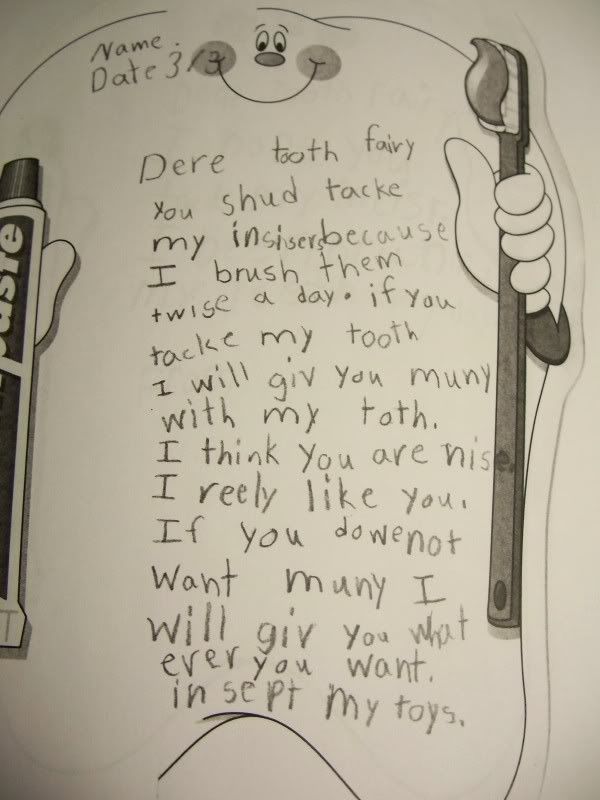 Name.
Date 3/3
Dere tooth fairy
You shud tacke
my insisers because
I brush them
twise a day. if you
tacke my tooth
I will giv you muny
with my toth.
I think you are nise.
I reely like you.
If you dowenot
want muny I
will giv you what
ever you want.
insept my toys.
paste